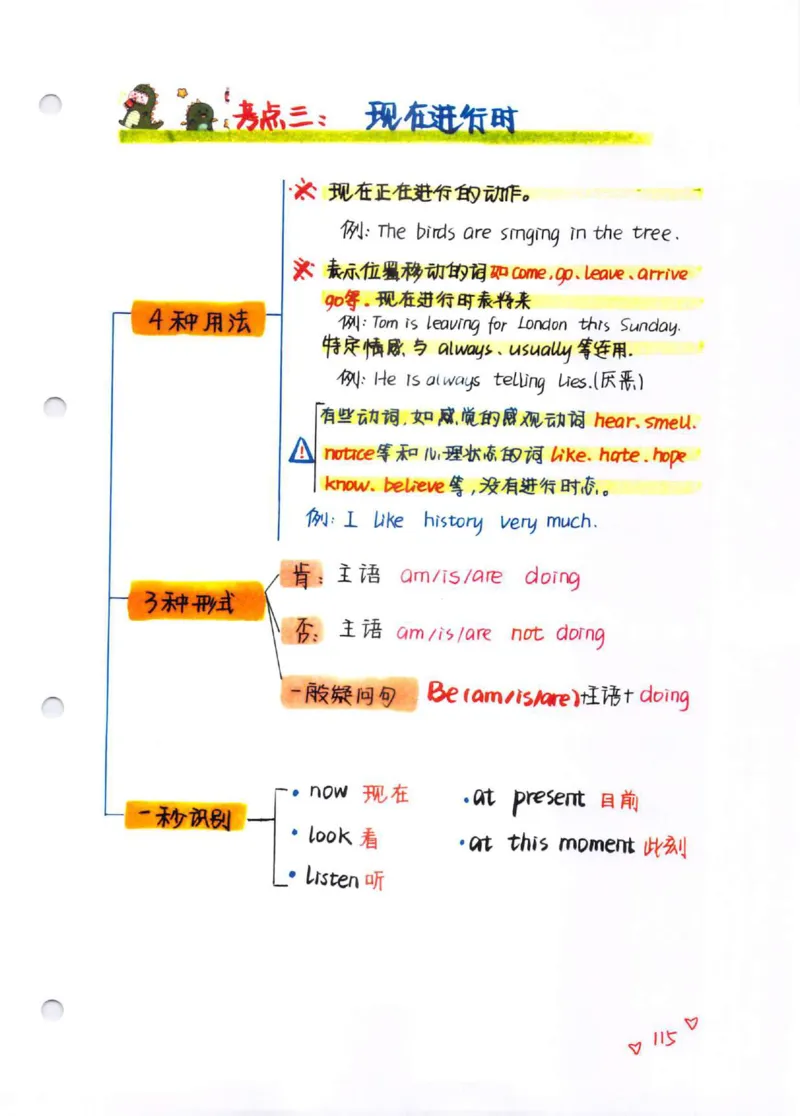 考点三： 现在进行时
现在正在进行的动作。
例: The birds are singing in the tree.
表示位置移动的词如come、go、leave、arrive
go等. 现在进行时表将来
4种用法
例: Tom is leaving for London this Sunday.
特定情感、与 always、usually 等连用.
例: He is always telling lies.(厌恶)
有些动词,如感觉的感观动词 hear、smell、
notice等和心理状态的词 like、hate、hope
know、believe等,没有进行时态。
例: I like history very much.
3种形式
肯: 主语 am/is/are doing
否: 主语 am/is/are not doing
一般疑问句 Be(am/is/are)+主语+doing
一秒识别
• now 现在
• look 看
• listen 听
• at present 目前
• at this moment 此刻
115